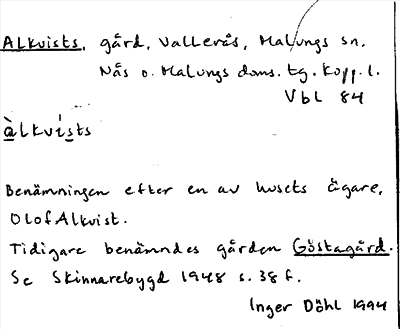 Alkvists, gård, Vallerås, Malungs sn.
Nås o. Malungs doms. tg. Kopp. l.
Vbl 84
àlkvísts
Benämningen efter en av husets ägare,
Olof Alkvist.
Tidigare benämndes gården Göstagård.
Se Skinnarebygd 1948 s. 38 f.
Inger Döhl 1994